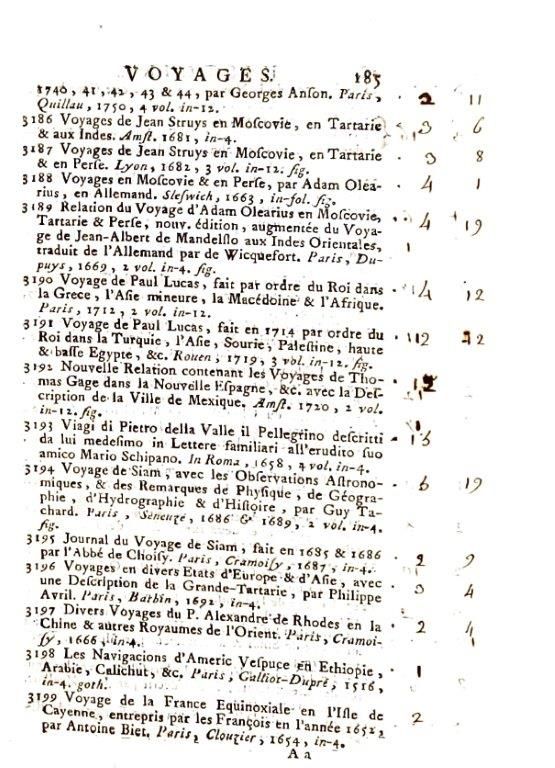 VOYAGES. 185
1740, 41, 42, 43 & 44, par Georges Anſon. Paris, 2 11
Quillau, 1750, 4 vol. in-12.
3186 Voyages de Jean Struys en Moſcovie, en Tartarie 3 6
& aux Indes. Amſt. 1681, in-4.
3187 Voyages de Jean Struys en Moſcovie, en Tartarie 3 8
& en Perſe. Lyon, 1682, 3 vol. in-12. fig.
3188 Voyages en Moſcovie & en Perſe, par Adam Olea- 4 1
rius, en Allemand. Sleſwich, 1663, in-fol. fig.
3189 Relation du Voyage d'Adam Olearius en Moſcovie, 4 19
Tartarie & Perſe, nouv. édition, augmentée du Voya-
ge de Jean-Albert de Mandelſlo aux Indes Orientales,
traduit de l'Allemand par de Wicquefort. Paris, Du-
puys, 1669, 2 vol. in-4. fig.
3190 Voyage de Paul Lucas, fait par ordre du Roi dans 4 12
la Grece, l'Aſie mineure, la Macédoine & l'Afrique.
Paris, 1712, 2 vol. in-12.
3191 Voyage de Paul Lucas, fait en 1714 par ordre du 12 12
Roi dans la Turquie, l'Aſie, Sourie, Paleſtine, haute
& baſſe Egypte, &c. Rouen, 1719, 3 vol. in-12. fig.
3192 Nouvelle Relation contenant les Voyages de Tho-
mas Gage dans la Nouvelle Eſpagne, &c. avec la Deſ-
cription de la Ville de Mexique. Amſt. 1720, 2 vol.
in-12. fig.
3193 Viagi di Pietro della Valle il Pellegrino deſcritti
da lui medeſimo in Lettere familiari all'erudito ſuo
amico Mario Schipano. In Roma, 1658, 4 vol. in-4.
3194 Voyage de Siam, avec les Obſervations Aſtrono- 6 19
miques, & des Remarques de Phyſique, de Géogra-
phie, d'Hydrographie & d'Hiſtoire, par Guy Ta-
chard. Paris, Seneuze, 1686 & 1689, 2 vol. in-4.
fig.
3195 Journal du Voyage de Siam, fait en 1685 & 1686 2 9
par l'Abbé de Choiſy. Paris, Cramoiſy, 1687, in-4.
3196 Voyages en divers Etats d'Europe & d'Aſie, avec 3 4
une Deſcription de la Grande-Tartarie, par Philippe
Avril. Paris, Barbin, 1692, in-4.
3197 Divers Voyages du P. Alexandre de Rhodes en la 2 4
Chine & autres Royaumes de l'Orient. Paris, Cramoi-
ſy, 1666, in-4.
3198 Les Navigacions d'Americ Veſpuce en Ethiopie, 1
Arabie, Calichut, &c. Paris, Galliot-Dupré, 1516,
in-4. goth.
3199 Voyage de la France Equinoxiale en l'Iſle de 2
Cayenne, entrepris par les François en l'année 1652,
par Antoine Biet. Paris, Clouzier, 1654, in-4.
A a